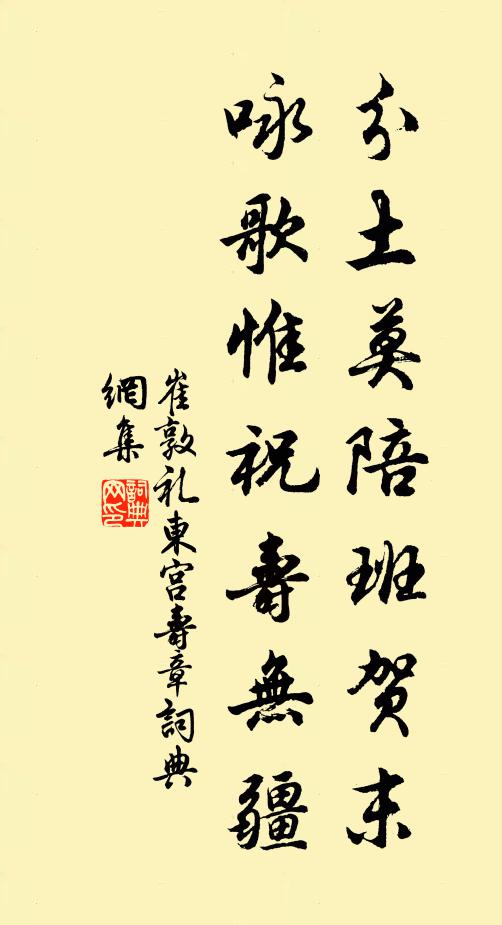 分土莫陪班贺末
咏歌惟祝壽無疆
崔敦礼東宫壽章詞典
網集
詞典
网印